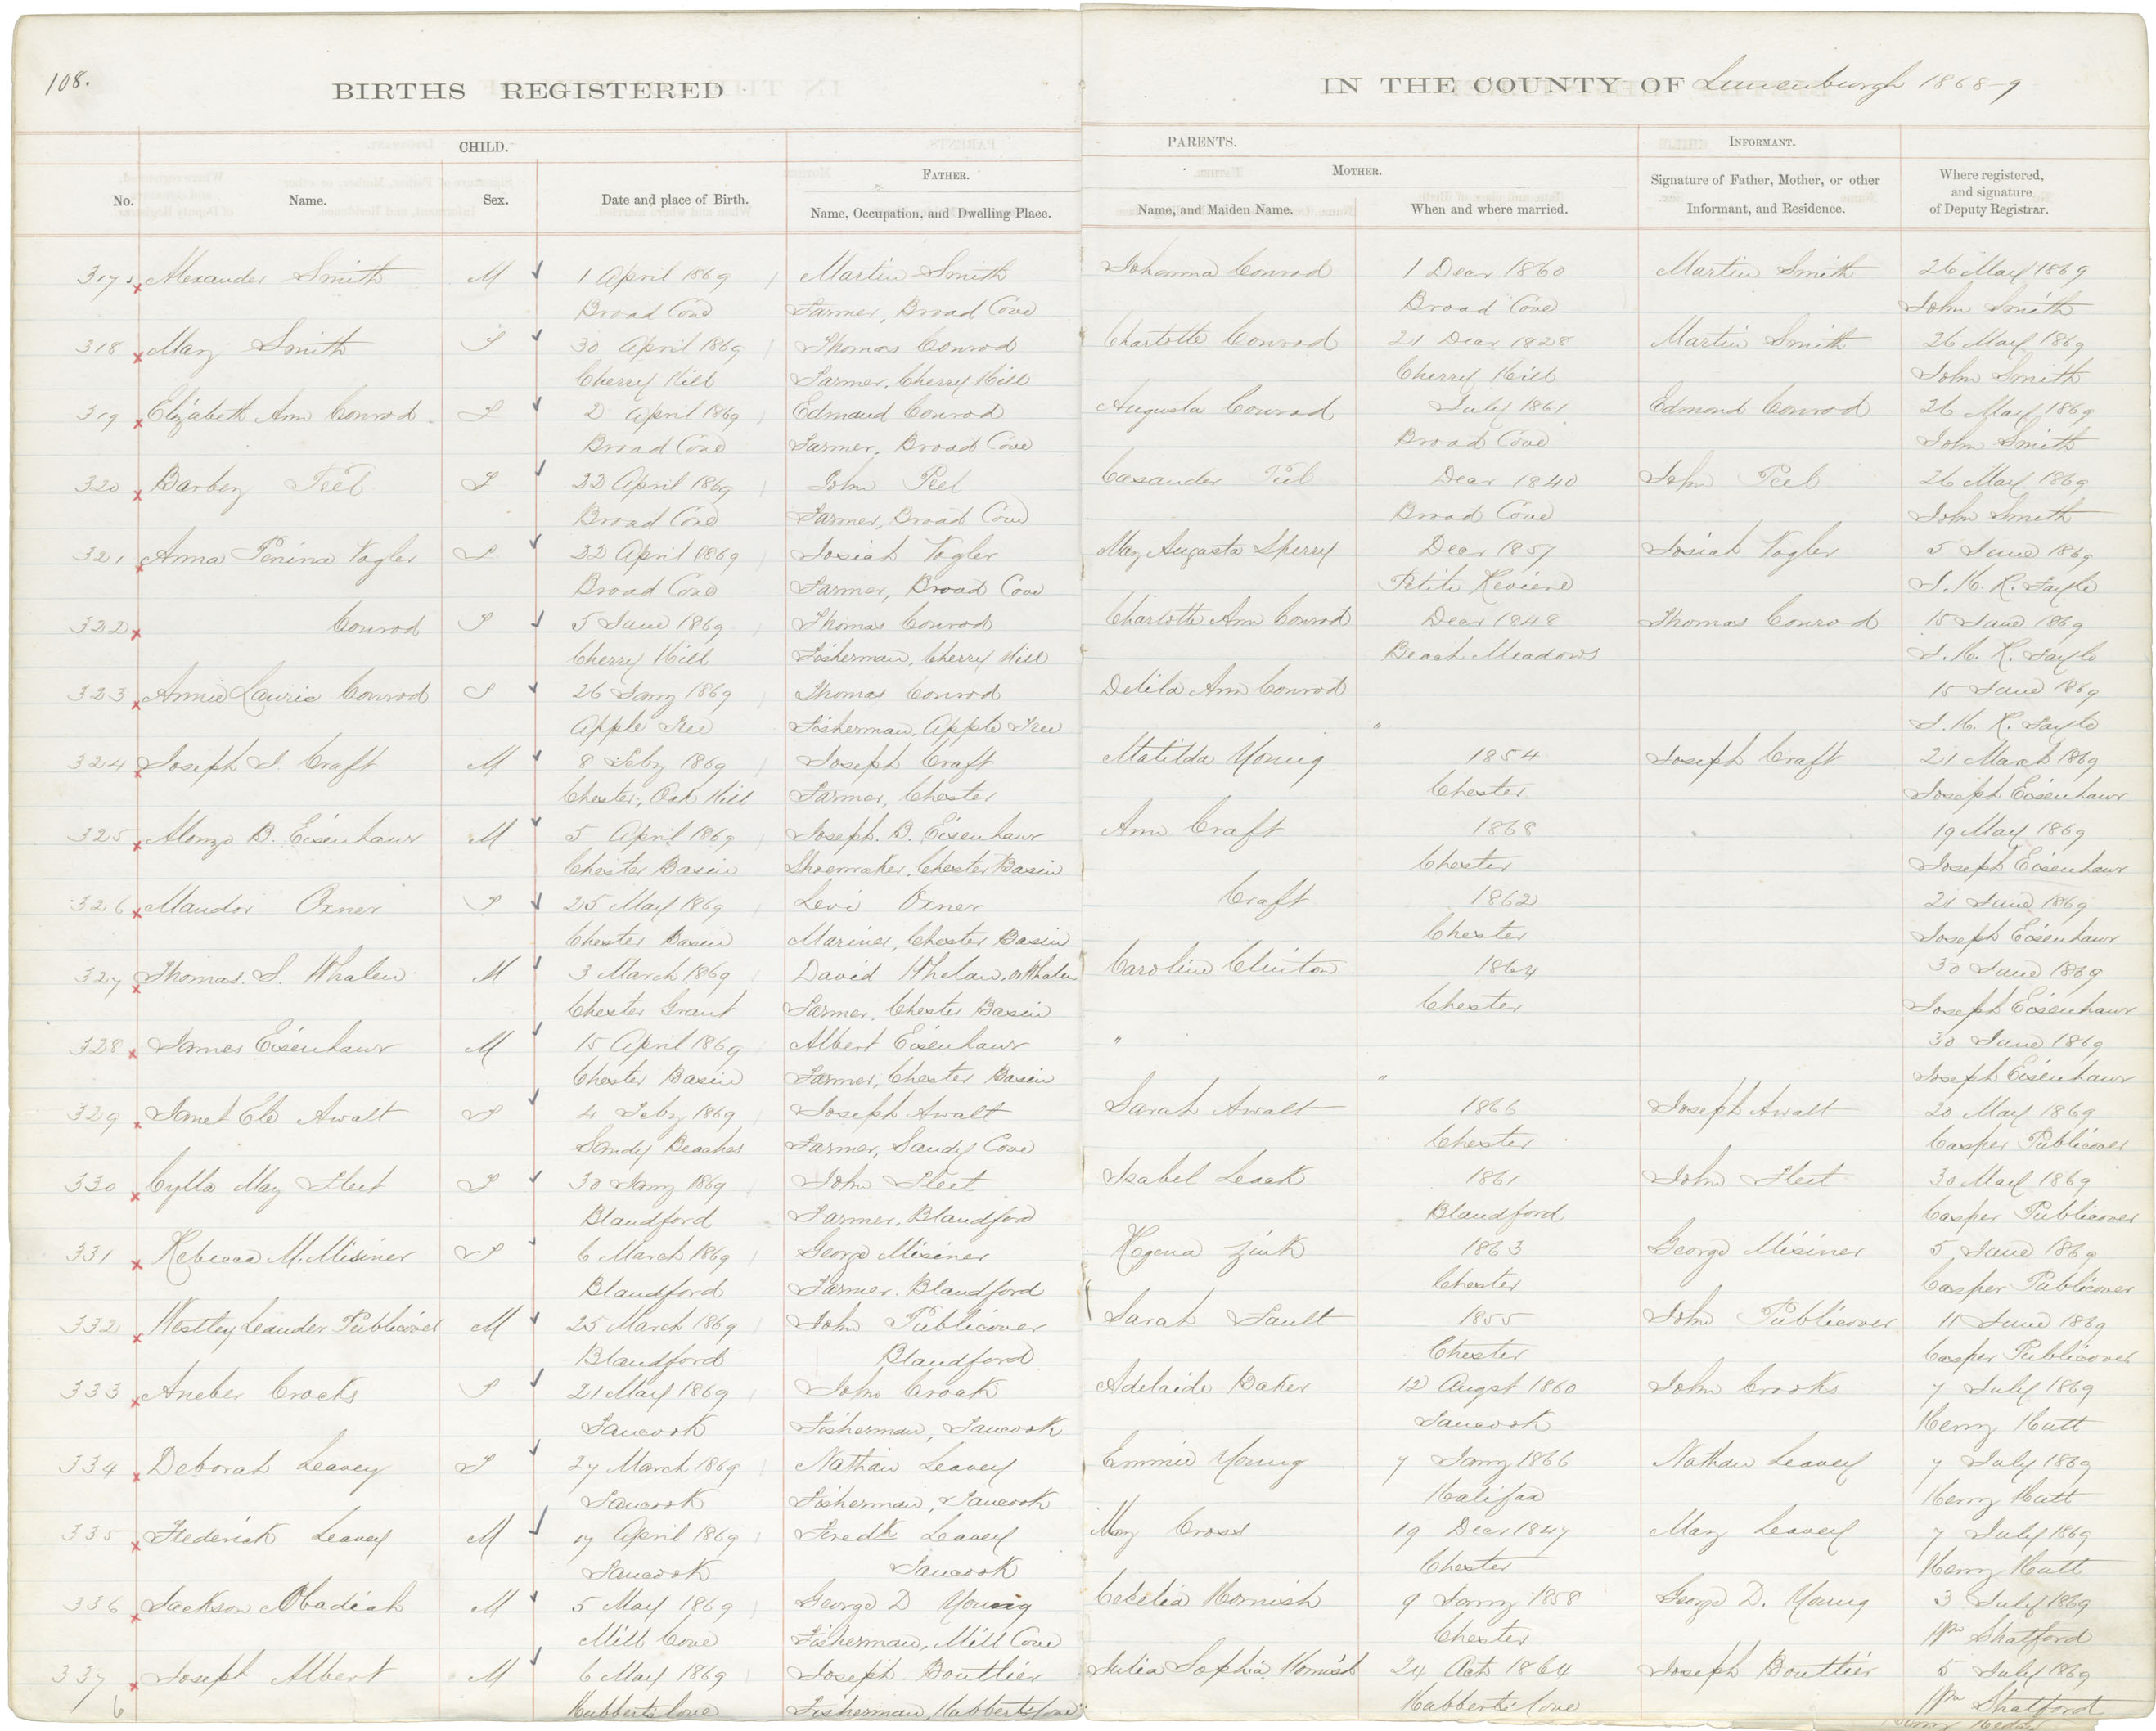 108.
BIRTHS REGISTERED IN THE COUNTY OF Lunenburgh 1868-9
CHILD. PARENTS. INFORMANT.
FATHER. MOTHER.
No. Name. Sex. Date and place of Birth. Name, Occupation, and Dwelling Place. Name, and Maiden Name. When and where married. Signature of Father, Mother, or other Informant, and Residence. Where registered, and signature of Deputy Registrar.
317 Alexander Smith M 1 April 1869 Martin Smith Johanna Conrod 1 Decr 1860 Martin Smith 26 May 1869
Broad Cove Farmer, Broad Cove Broad Cove John Smith
318 Mary Smith F 30 April 1869 Thomas Conrod Charlotte Conrod 21 Decr 1828 Martin Smith 26 May 1869
Cherry Hill Farmer, Cherry Hill Cherry Hill John Smith
319 Elizabeth Ann Conrod F 2 April 1869 Edmund Conrod Augusta Conrod July 1861 Edmond Conrod 26 May 1869
Broad Cove Farmer, Broad Cove Broad Cove John Smith
320 Barbery Teel F 22 April 1869 John Peel Casander Teel Decr 1840 John Peel 26 May 1869
Broad Cove Farmer, Broad Cove Broad Cove John Smith
321 Anna Penina Vogler F 22 April 1869 Josiah Vogler May Augusta Sperry Decr 1857 Josiah Vogler 5 June 1869
Broad Cove Farmer, Broad Cove Petite Reviere
322 Conrod F 5 June 1869 Thomas Conrod Charlotte Ann Conrod Decr 1848 Thomas Conrod 15 June 1869
Cherry Hill Fisherman, Cherry Hill Beach Meadows
323 Annie Laurie Conrod F 26 Jany 1869 Thomas Conrod Delila Ann Conrod 15 June 1869
Apple Tree Fisherman, Apple Tree "
324 Joseph I. Craft M 8 Feby 1869 Joseph Craft Matilda Young 1854 Joseph Craft 21 March 1869
Chester, Oak Hill Farmer, Chester Chester Joseph Eisenhaur
325 Alonzo B. Eisenhaur M 5 April 1869 Joseph. B. Eisenhaur Ann Craft 1868 19 May 1869
Chester Basin Shoemaker, Chester Basin Chester Joseph Eisenhaur
326 Maudor Oxner F 25 May 1869 Levi Oxner Craft 1862 21 June 1869
Chester Basin Mariner, Chester Basin Chester Joseph Eisenhaur
327 Thomas. S. Whalen M 3 March 1869 David Whelan, or Whalen Caroline Clinton 1864 30 June 1869
Chester Grant Farmer, Chester Basin Chester Joseph Eisenhaur
328 James Eisenhaur M 15 April 1869 Albert Eisenhaur " 30 June 1869
Chester Basin Farmer, Chester Basin " Joseph Eisenhaur
329 Janet Ele Awalt F 4 Feby 1869 Joseph Awalt Sarah Awalt 1866 Joseph Awalt 20 May 1869
Sandy Beaches Farmer, Sandy Cove Chester Casper Publicover
330 Cylla May Fleet F 30 Jany 1869 John Fleet Isabel Leack 1861 John Fleet 30 May 1869
Blandford Farmer, Blandford Blandford Casper Publicover
331 Rebecca M. Misiner F 6 March 1869 George Misiner Regena Zink 1863 George Misiner 5 June 1869
Blandford Farmer. Blandford Chester Casper Publicover
332 Westley Leander Publicover M 25 March 1869 John Publicover Sarah Sault 1855 John Publicover 11 June 1869
Blandford Blandford Chester Casper Publicover
333 Aneber Crooks F 21 May 1869 John Crook Adelaide Baker 12 Augst 1860 John Crooks 7 July 1869
Tancook Fisherman, Tancook Tancook Henry Hutt
334 Deborah Leavey F 27 March 1869 Nathan Leavey Emmie Young 7 Jany 1866 Nathan Leavey 7 July 1869
Tancook Fisherman, Tancook Halifax Henry Hutt
335 Frederick Leavey M 17 April 1869 Fredk Leavey May Cross 19 Decr 1847 Mary Leavey 7 July 1869
Tancook Tancook Chester Henry Hutt
336 Jackson Obadiah M 5 May 1869 George D Young Cecelia Hornish 9 Jany 1858 George D. Young 3 July 1869
Mill Cove Fisherman, Mill Cove Chester Wm Shatford
337 Joseph Albert M 6 May 1869 Joseph Bouttier Julia Sophia Hornish 24 Oct 1864 Joseph Bouttier 5 July 1869
6 Hubberts Cove Fisherman, Hubberts Cove Hubberts Cove Wm Shatford